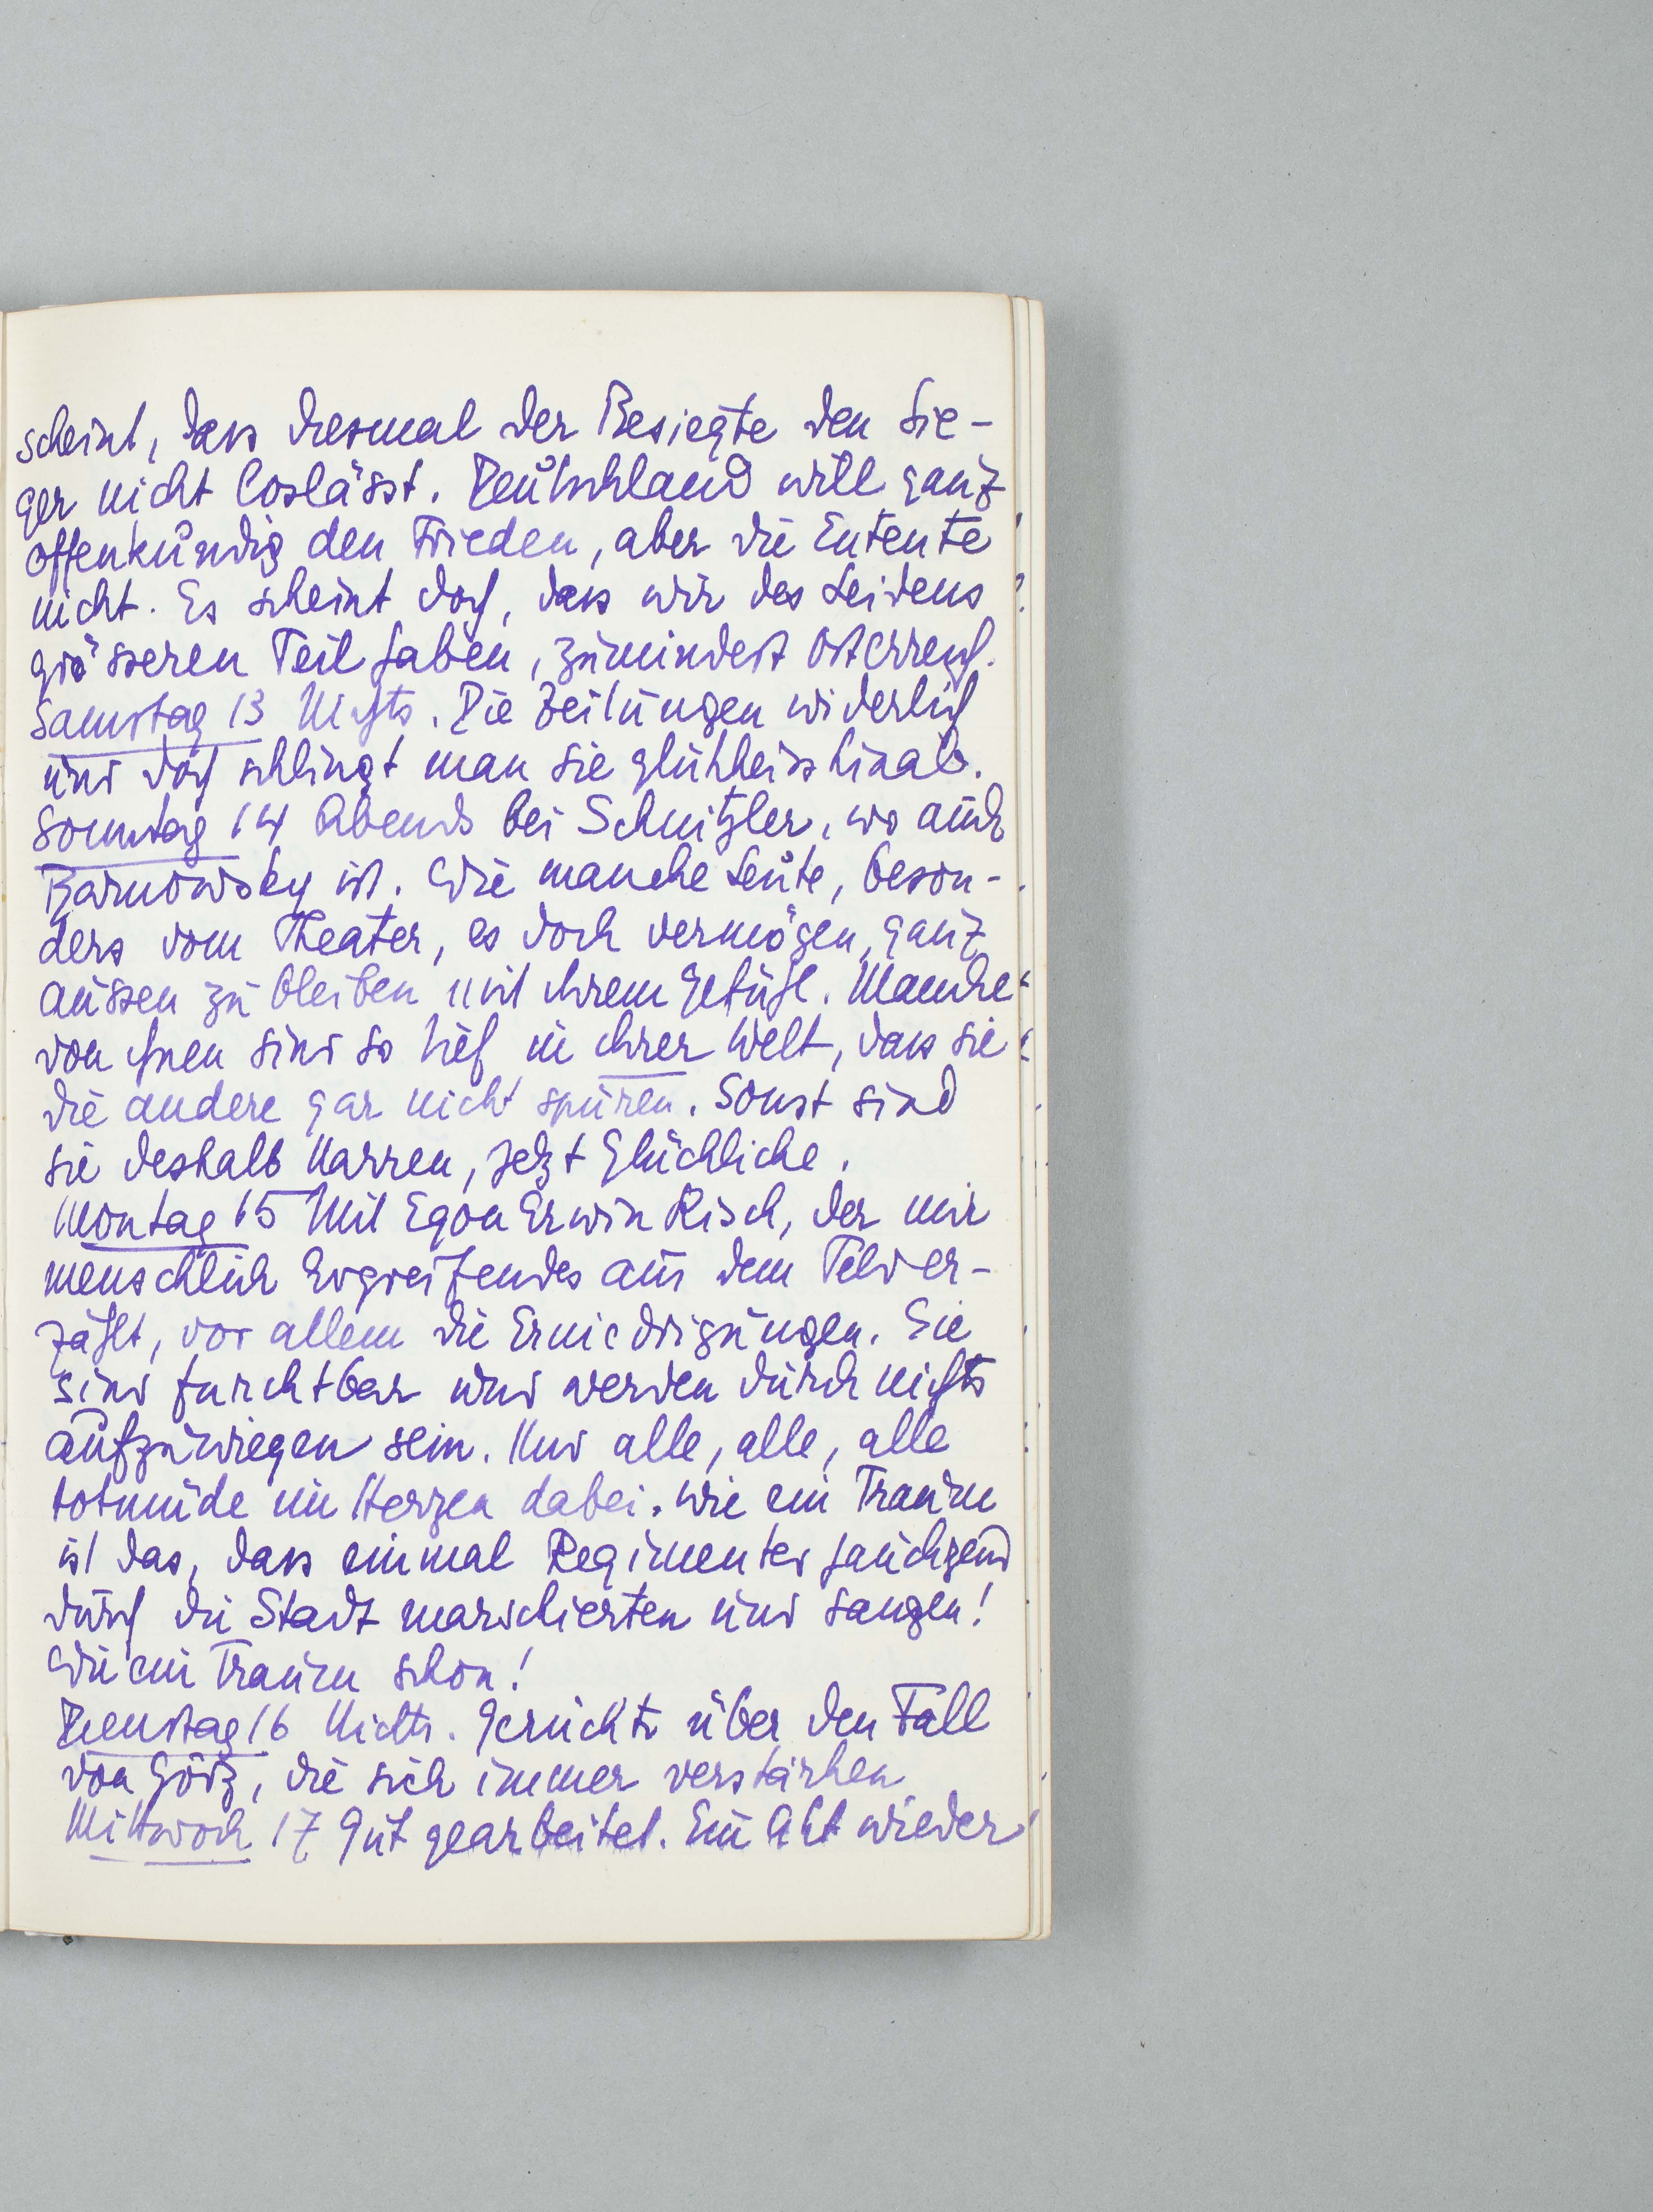 scheint, dass diesmal der Besiegte den Sie-
ger nicht loslässt. Deutschland will ganz
offenkundig den Frieden, aber die Entente
nicht. Es scheint doch, dass wir des Leidens
grösseren Teil haben, zumindest Österreich.
Samstag 13 Nichts. Die Zeitungen widerlich
und doch schlingt man sie glühheiss hinab.
Sonntag 14 Abends bei Schnitzler, wo auch
Barnowsky ist. Wie manche Leute, beson-
ders vom Theater, es doch vermögen, ganz
aussen zu bleiben mit ihrem Gefühl. Manche
von ihnen sind so tief in ihrer Welt, dass sie
die andere gar nicht spüren. Sonst sind
sie deshalb Narren, jetzt Glückliche.
Montag 15 Mit Egon Erwin Kisch, der mir
menschlich Ergreifendes aus dem Feld er-
zählt, vor allem die Erniedrigungen. Sie
sind furchtbar und werden durch nichts
aufzuwiegen sein. Und alle, alle, alle
totmüde im Herzen dabei. Wie ein Traum
ist das, dass einmal Regimenter jauchzend
durch die Stadt marschierten und sangen!
Wie ein Traum schon!
Dienstag 16 Nichts. Gerüchte über den Fall
von Görz, die sich immer verstärken
Mittwoch 17 Gut gearbeitet. Ein Akt wieder